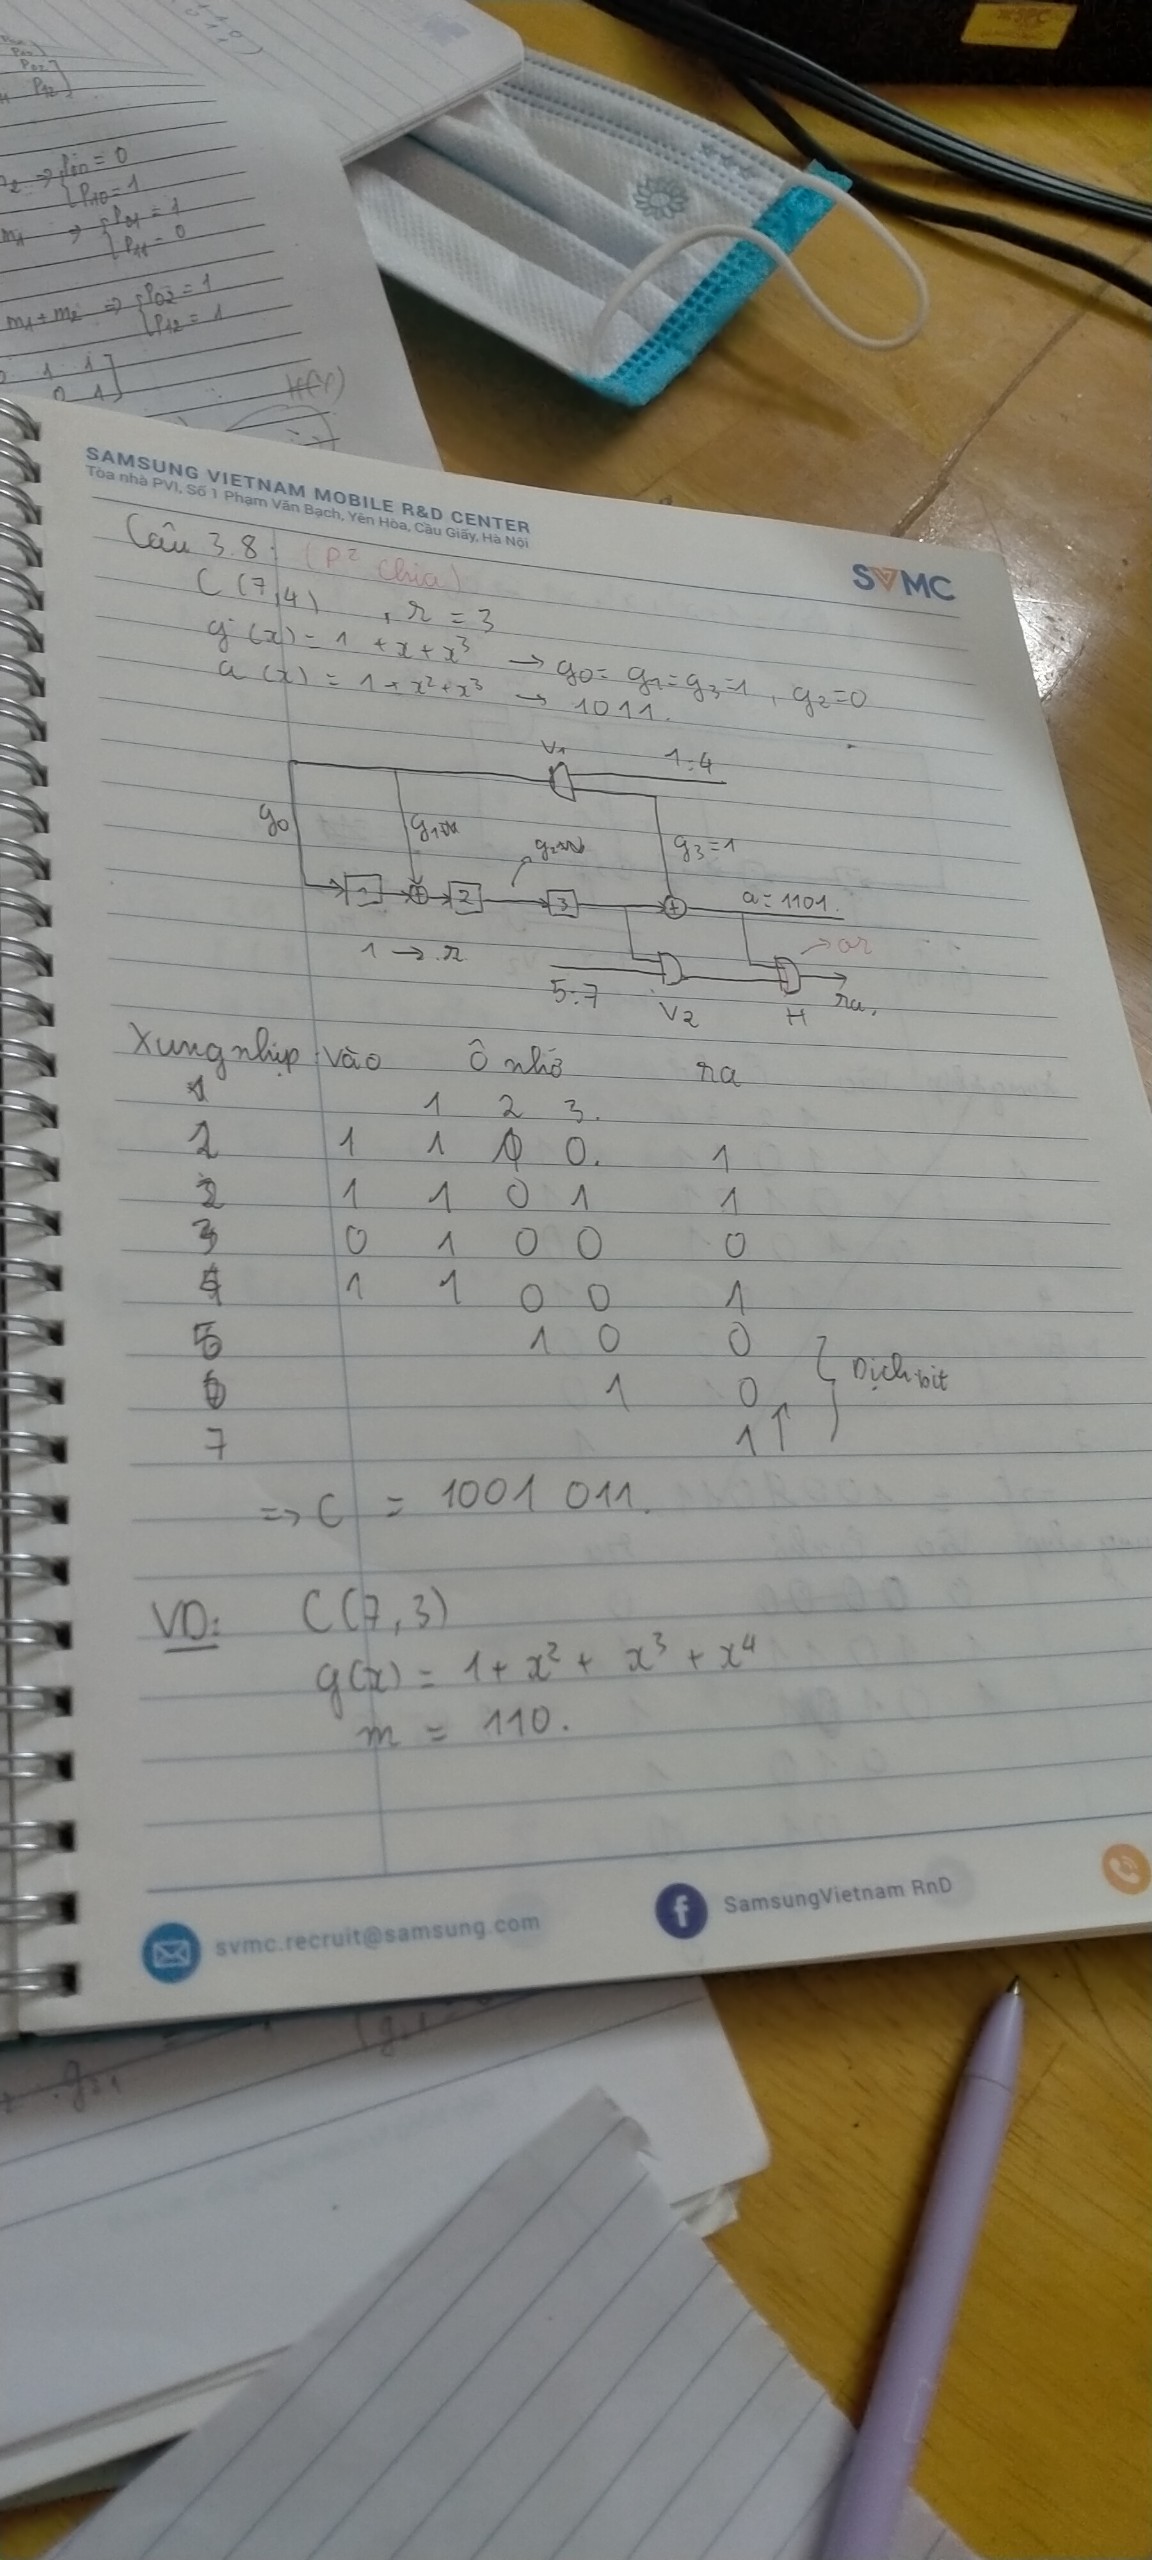 P02
P12
P10 = 1
m1 ⇒ P01 = 1
P11 = 0
m1 + m2 ⇒ P02 = 1
P12 = 1
0 1 1
0 1
H(Y)
SAMSUNG VIETNAM MOBILE R&D CENTER
Tòa nhà PVI, Số 1 Phạm Văn Bạch, Yên Hòa, Cầu Giấy, Hà Nội
SVMC
Câu 3.8: (P² chia)
C(7,4) , r = 3
g(x) = 1 + x + x³ → g0 = g1 = g3 = 1, g2 = 0
a(x) = 1 + x² + x³ → 1011.
V1 1÷4
g0 g1 g2 g3 = 1
1 2 3 a = 1101.
1 → r → or
5÷7 V2 H ra.
Xung nhịp vào Ô nhớ ra
1 2 3.
1 1 1 0. 1
2 1 1 0 1 1
3 0 1 0 0 0
4 1 1 0 0 1
5 1 0 0
6 1 0 Dịch bit
7 1 ↑
⇒ C = 1001 011.
VD: C(7,3)
g(x) = 1 + x² + x³ + x⁴
m = 110.
svmc.recruit@samsung.com
SamsungVietnam RnD